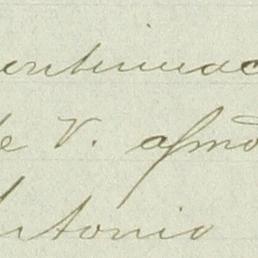 continuac
de V. afmo
Antonio